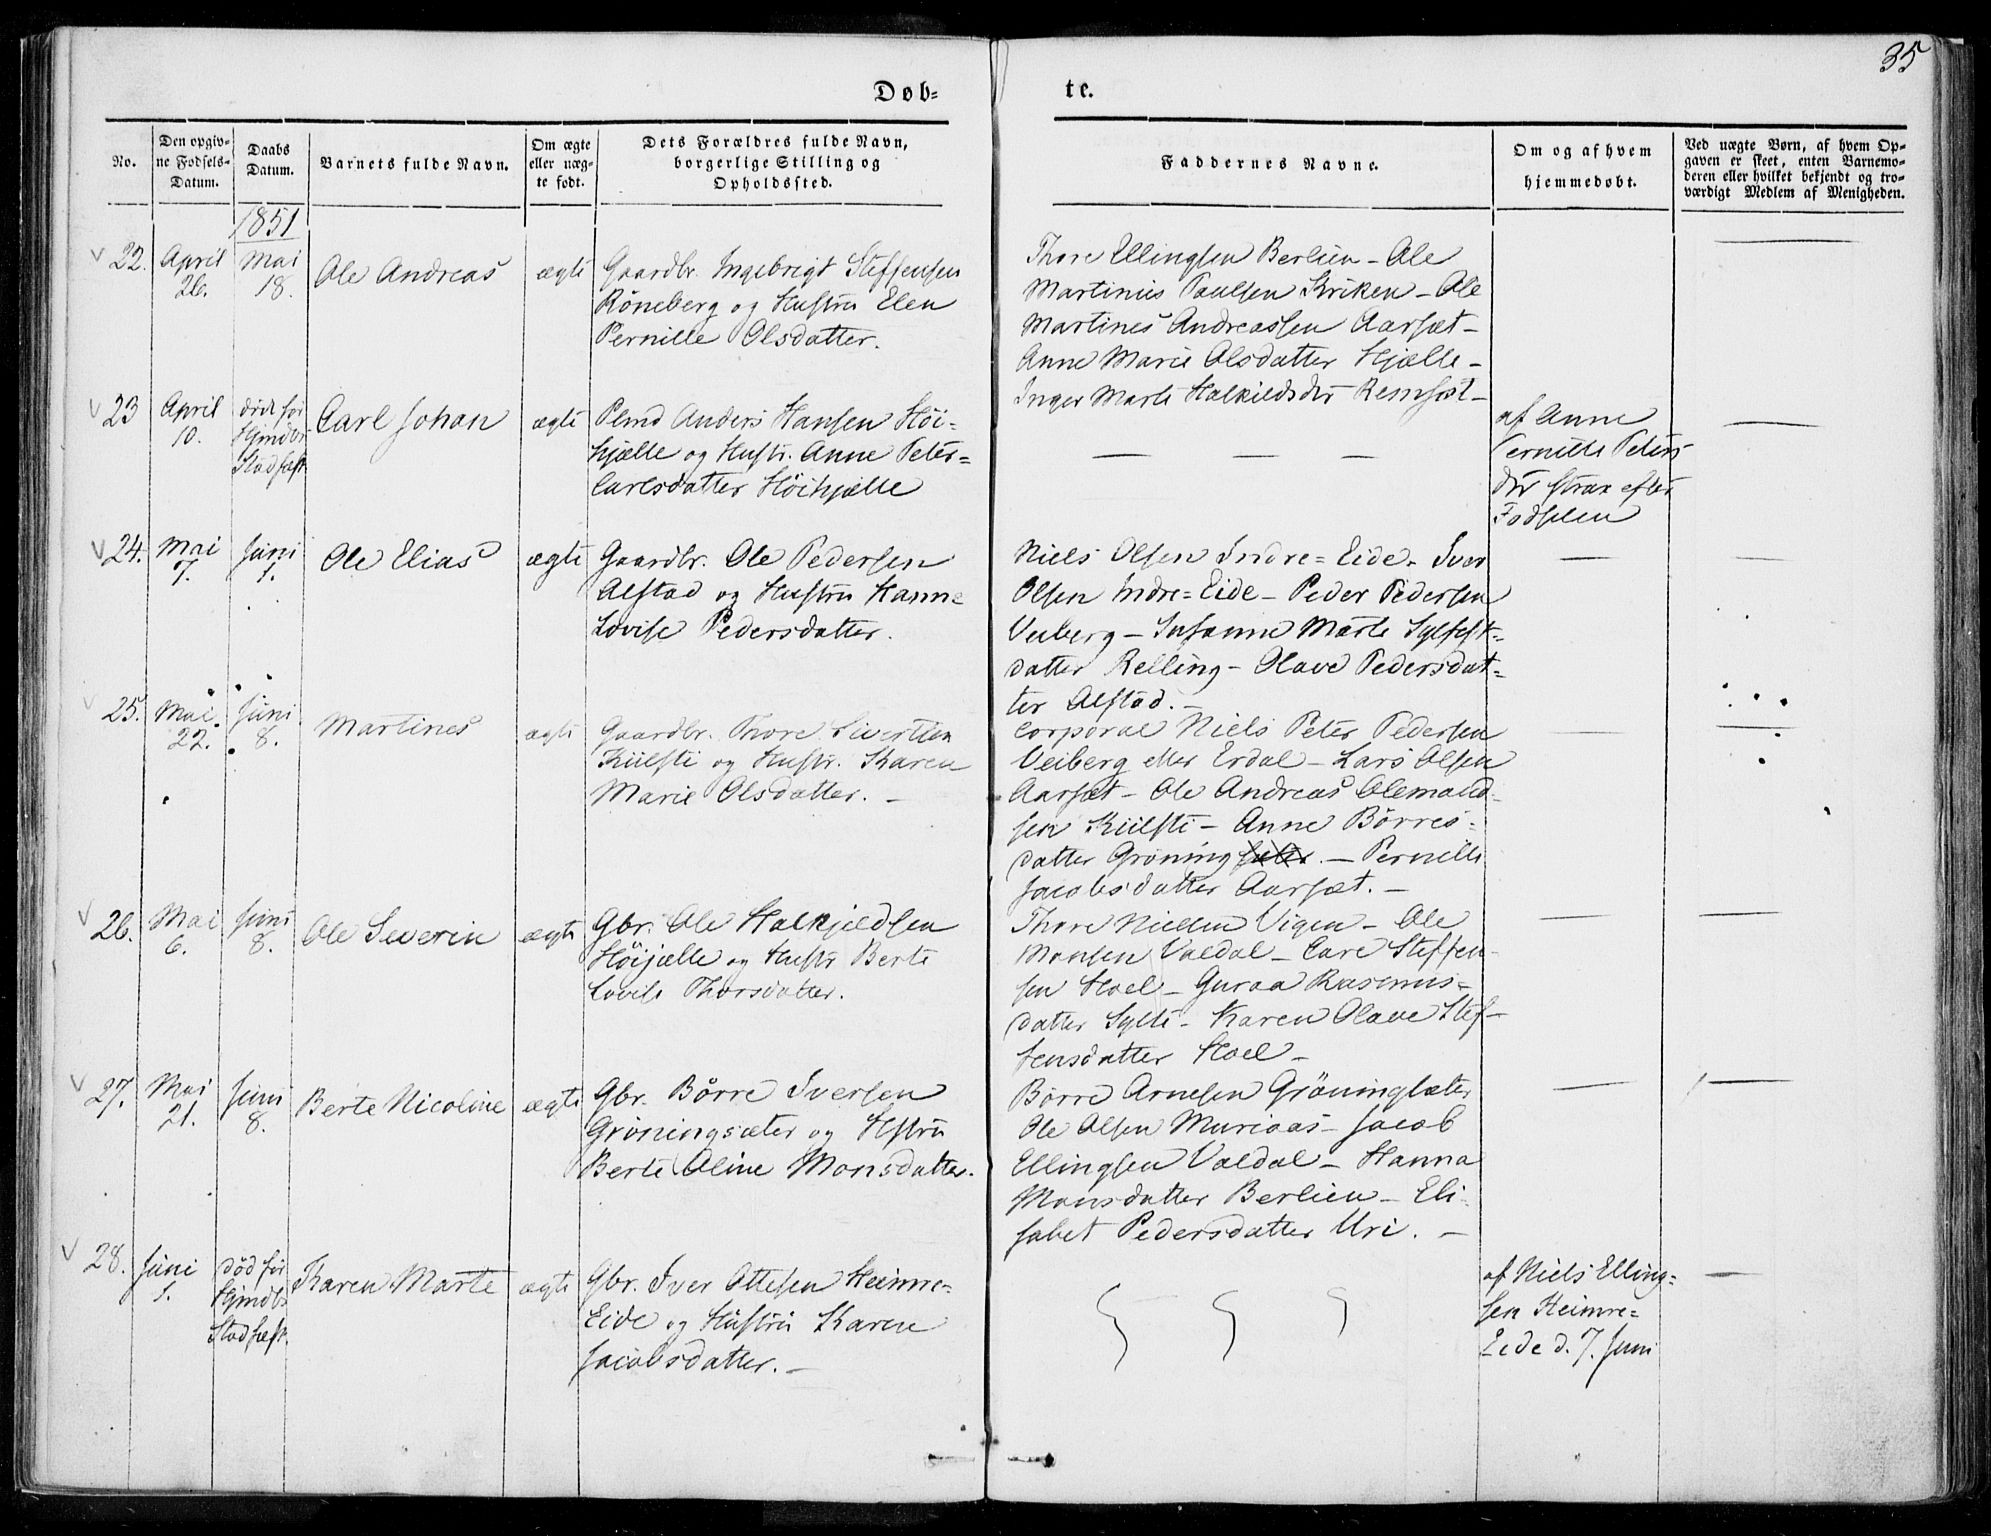 35
Døb-
te.
No.
Den opgiv-
ne Fødsels-
Datum.
Daabs
Datum.
Barnets fulde Navn.
Om ægte
eller uæg-
te født.
Dets Forældres fulde Navn,
borgerlige Stilling og
Opholdssted.
Faddernes Navne.
Om og af hvem
hjemmedøbt.
Ved uægte Børn, af hvem Op-
gaven er skeet, enten Barnemo-
deren eller hvilket bekjendt og tro-
værdigt Medlem af Menigheden.
1851
22.
April
26.
Mai
18.
Ole Andreas
ægte
Gaardbr. Ingebrigt Steffensen
Röneberg og Hustru Elen
Pernille Olsdatter.
Thore Ellingsen Berlien - Ole
Martinus Paulsen Kriken - Ole
Martines Andreassen Aarsæt -
Anne Marie Olsdatter Hjælle -
Inger Marte Halkildsdtr Remsöt -
23
April
10.
död för
Hjmdbs
Stadfæst.
Carl Johan
ægte
Plmd Anders Hansen Höi-
hjælle og Hustr. Anne Peter-
Carlsdatter Höihjælle
af Anne
Pernille Peters
dtr strax efter
Fødselen
24.
Mai
7.
Juni
1.
Ole Elias
ægte
Gaardbr. Ole Pedersen
Alstad og Hustru Hanne
Lovise Pedersdatter.
Niels Olsen Indre=Eide - Iver
Olsen Indre=Eide - Peder Pedersen
Veiberg - Susanne Marte Sylfest-
datter Relling - Olave Pedersdat-
ter Alstad. -
25.
Mai
22.
Juni
8.
Martines
ægte
Gaardbr. Thore Sivertsen
Külsti og Hustr. Karen
Marie Olsdatter. -
Corporal Niels Peter Pedersen
Veiberg eller Erdal - Lars Olsen
Aarsæt - Ole Andreas Olemand-
sen Külsti - Anne Börres-
datter Gröning sæter. - Pernille
Jacobsdatter Aarsæt. -
26.
Mai
6.
Juni
8.
Ole Severin
ægte
Gbr. Ole Halkjeldsen
Höijælle og Hustr Berte
Lovise Thorsdatter.
Thore Nielsen Vigen - Ole
Monsen Valdal - Carl Steffen-
sen Hoel - Guraa Rasmus-
datter Sylte - Karen Olave Stef-
fensdatter Hoel -
27.
Mai
21.
Juni
8.
Berte Nicoline
ægte
Gbr. Börre Iversen
Gröningsæter og Hstru
Berte Oline Monsdatter.
Börre Arnesen Gröningsæter
Ole Olsen Muriaas - Jacob
Ellingsen Valdal - Hanna
Monsdatter Berlien - Eli-
sabet Pedersdatter Uri. -
28.
Juni
1.
död för
Hjmdbs
Stadfæst.
Karen Marte
ægte
Gbr. Iver Ottesen Heimre-
Eide og Hustru Karen
Jacobsdatter. -
af Niels Elling-
sen Heimre-
Eide d. 7. Juni